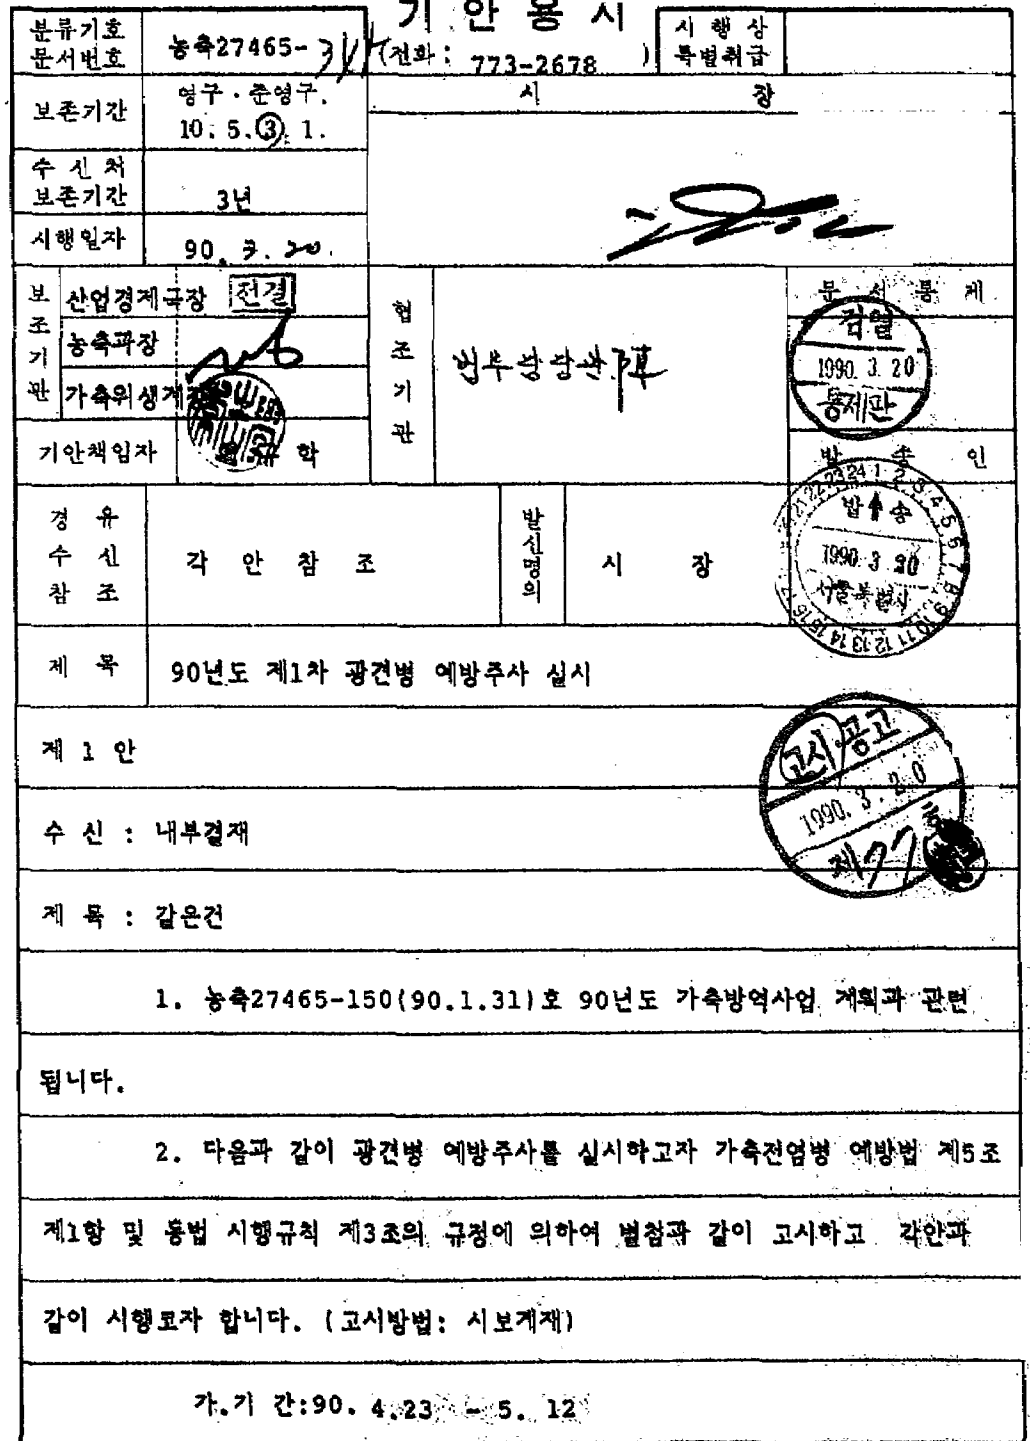 기 안 용 지
분류기호
문서번호
농축27465-
(전화: 773-2678 )
시 행 상
특별취급
보존기간
영구·준영구.
10. 5. ③. 1.
시 장
수 신 처
보존기간
3년
시행일자
90. 3. 20.
보조기관
산업경제국장 전결
농축과장
가축위생계장
기안책임자
학
협조기관
법무담당관
문 서 통 제
검열
1990. 3. 20
통제관
발 송 인
발 송
1990. 3. 20
서울특별시
경 유
수 신
참 조
각 안 참 조
발신명의
시 장
제 목
90년도 제1차 광견병 예방주사 실시
고시 공고
1990. 3. 20
제77
제 1 안
수 신 : 내부결재
제 목 : 같은건
1. 농축27465-150(90.1.31)호 90년도 가축방역사업 계획과 관련
됩니다.
2. 다음과 같이 광견병 예방주사를 실시하고자 가축전염병 예방법 제5조
제1항 및 동법 시행규칙 제3조의 규정에 의하여 별첨과 같이 고시하고 각안과
같이 시행코자 합니다. (고시방법: 시보게재)
가.기 간:90. 4.23 - 5. 12